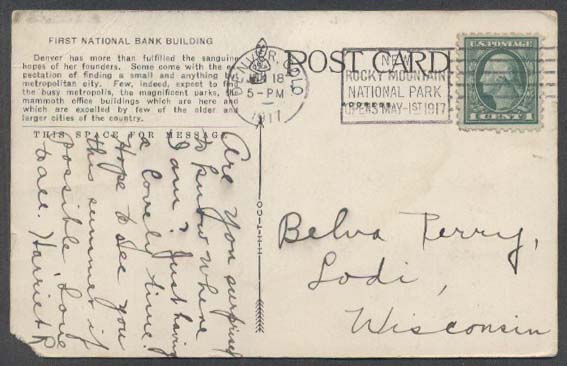 FIRST NATIONAL BANK BUILDING
Denver has more than fulfilled the sanguine
hopes of her founders. Some come with the ex-
pectation of finding a small and anything but
metropolitan city. Few, indeed, expect to find
the busy metropolis, the magnificent parks, the
mammoth office buildings which are here and
which are excelled by few of the older and
larger cities of the country.
THIS SPACE FOR MESSAGE
POST CARD
ADDRESS
DENVER, COLO
18
5-PM
1917
NEW
ROCKY MOUNTAIN
NATIONAL PARK
OPENS MAY-1ST 1917
U.S. POSTAGE
1 CENT 1
Are you surprised
to know where
I am? Just having
a lovely time.
Hope to see you
this summer if
possible. Love
to all. Harriet R
Belva Perry,
Lodi,
Wisconsin